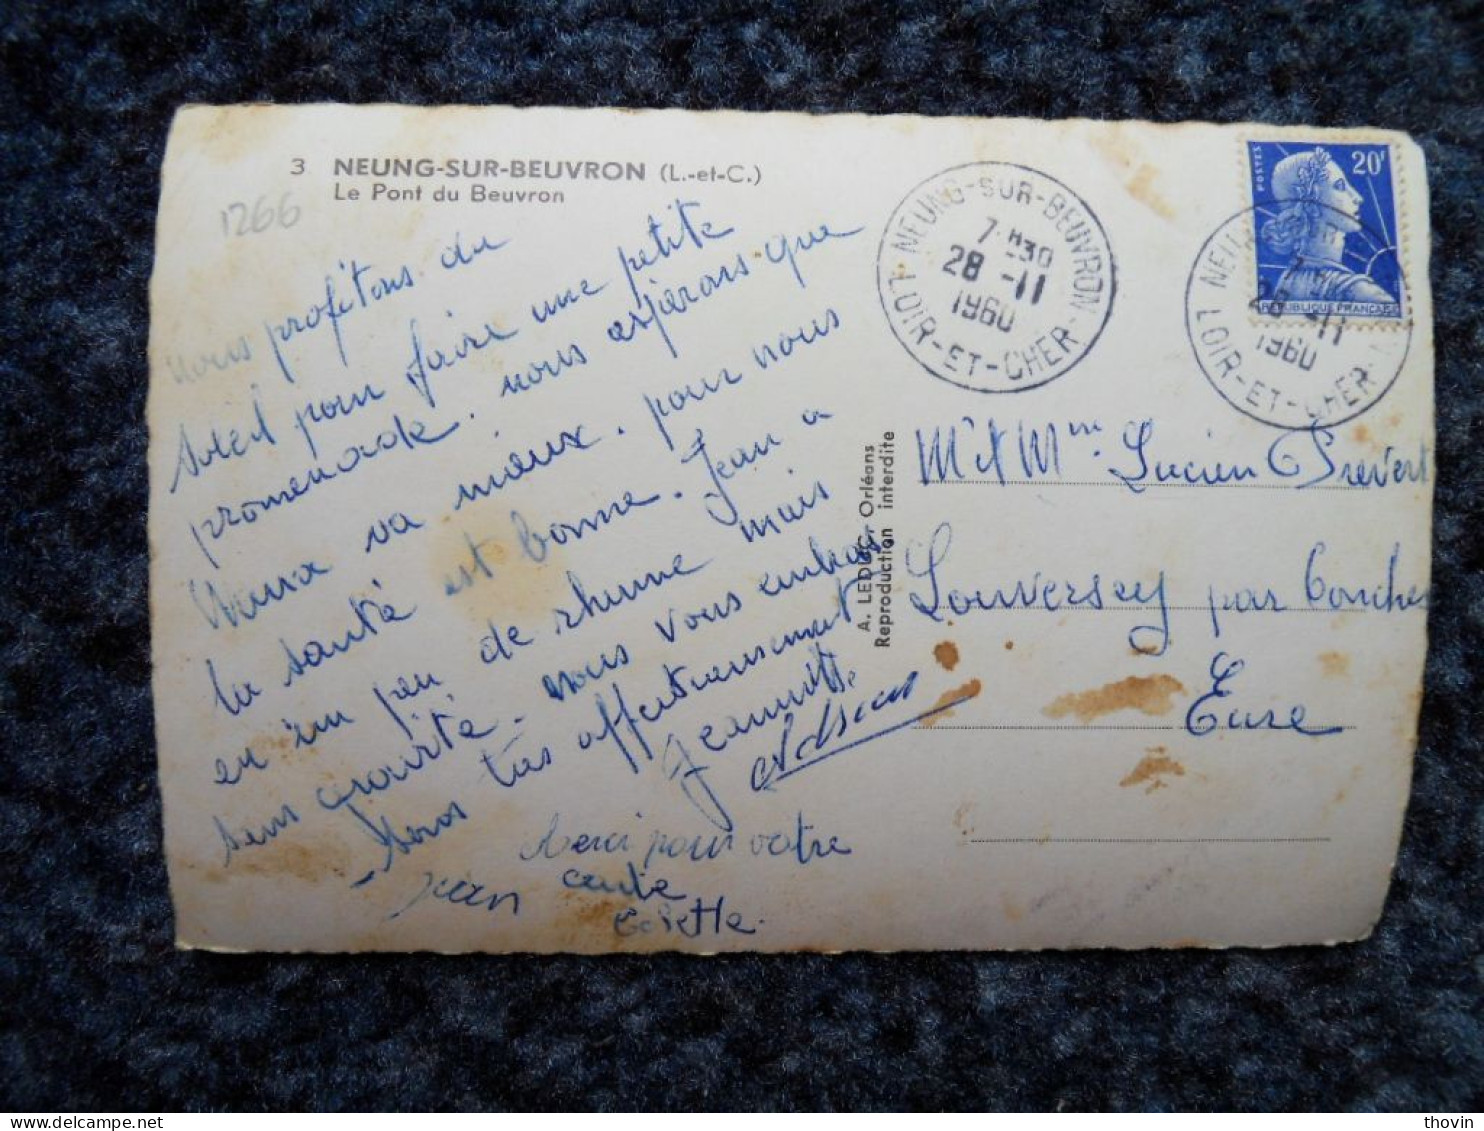 3 NEUNG-SUR-BEUVRON (L.-et-C.)
Le Pont du Beuvron
1266
nous profitons du
soleil pour faire une petite
promenade. nous espérons que
va mieux. pour nous
la santé est bonne. Jean a
eu un peu de rhume mais
sans gravité. nous vous embras
sons très affectueusement
Jeannette
Adrien
Jean
Merci pour votre
carte
Colette.
NEUNG-SUR-BEUVRON
7 H30
28 -11
1960
LOIR-ET-CHER
POSTES
20F
REPUBLIQUE FRANÇAISE
28 -11
1960
LOIR-ET-CHER
A. LEDUC, Orléans
Reproduction interdite
Mr et Mme Lucien Prevert
Louversey par Conches
Eure
thovin